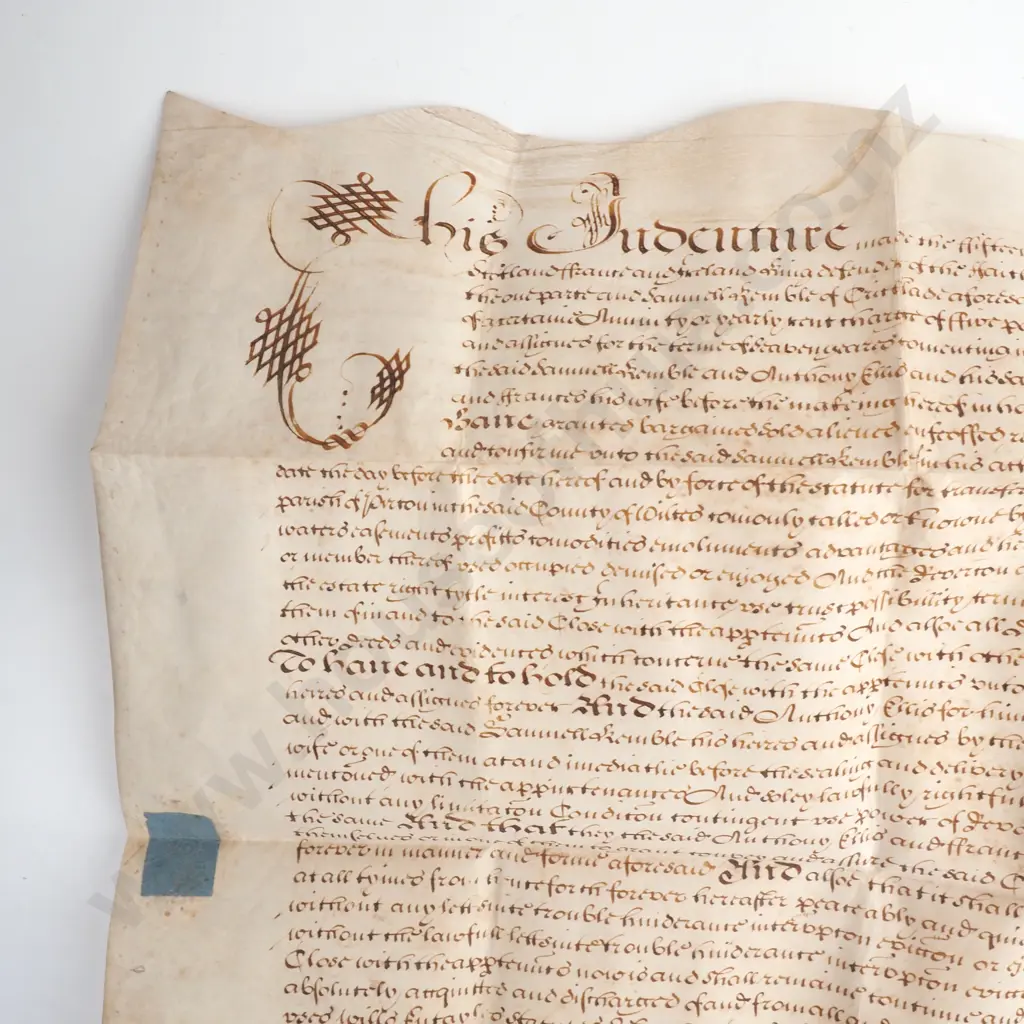 This Indenture made the fifteen
Scotland ffrance and Ireland King defender of the ffaith
the one parte and Samuell Kemble of Cricklade aforesd
of a certaine Annuity or yearly rent charge of ffive po
and assignes for the terme of Seaven yeares comenting
the said Samuell Kemble and Anthony Ellis and his sa
and ffrances his wife before the makeing hereof in he
Have granted bargained sold aliened enfeoffed r
and confirme unto the said Samuell Kemble in his
date the day before the date hereof and by force of the statute for transfer
parish of Pirton in the said County of Wiltes comonly called or knowne b
waters easements profitts comodities emoluments advantages and he
or member thereof used occupied demised or enjoyed And the Revercon
the estate right tytle interest Inheritance use trust possibility
them of in and to the said Close with the apptenncs And alsoe all
other deeds and evidences which concerne the same Close with othe
To have and to hold the said Close with the apptenncs unto
heires and assignes forever And the said Anthony Ellis for him
and with the said Samuell Kemble his heires and assignes by the
wife or one of them at and imediatlie before the sealing and delivery
mentoned with the appurtenances And soley lawfully rightfu
without any limitacon Condicon contingent use power of Revo
the same And that they the said Anthony Ellis and ffranc
and assure the said C
forever in manner and forme aforesaid And alsoe that it shall
at all tymes from henceforth forever hereafter peaceably and qui
without any lett suite trouble hinderance interupcon eviccon or
without the lawfull lett suite trouble hinderance interupcon evicc
Close with the apptenncs now is and shall remaine continue and
absolutely acquitted and discharged of and from all and
uses wills Entayles